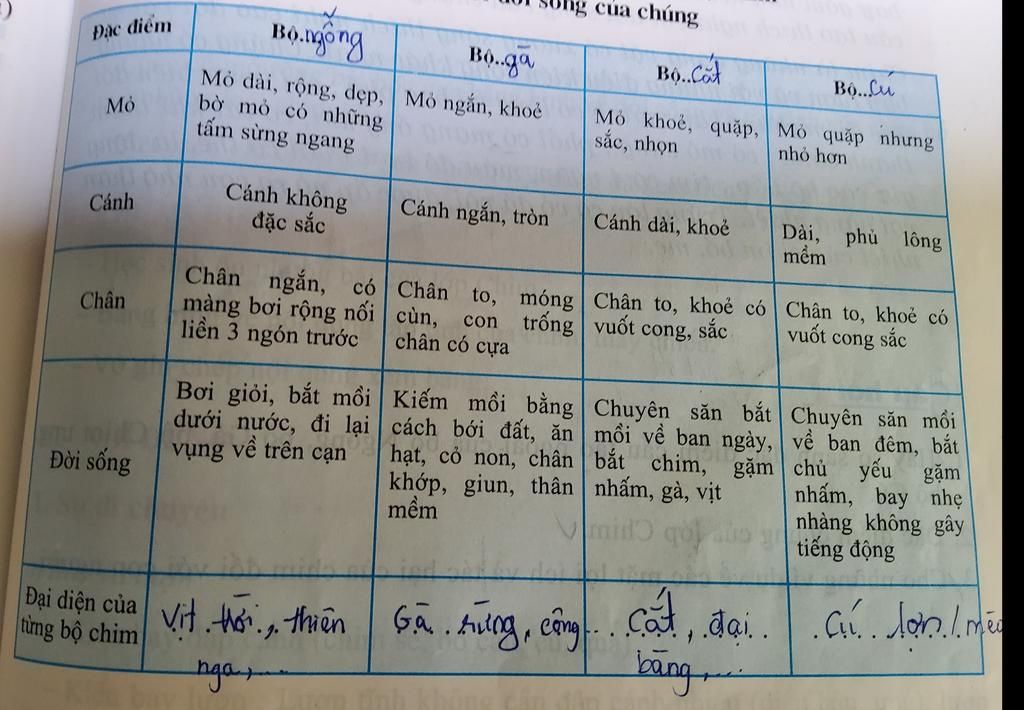 đời sống của chúng
Đặc điểm
Bộ..ngỗng
Bộ..gà
Bộ..Cắt
Bộ..Cú
Mỏ
Mỏ dài, rộng, dẹp,
bờ mỏ có những
tấm sừng ngang
Mỏ ngắn, khoẻ
Mỏ khoẻ, quặp,
sắc, nhọn
Mỏ quặp nhưng
nhỏ hơn
Cánh
Cánh không
đặc sắc
Cánh ngắn, tròn
Cánh dài, khoẻ
Dài, phủ lông
mềm
Chân
Chân ngắn, có
màng bơi rộng nối
liền 3 ngón trước
Chân to, móng
cùn, con trống
chân có cựa
Chân to, khoẻ có
vuốt cong, sắc
Chân to, khoẻ có
vuốt cong sắc
Đời sống
Bơi giỏi, bắt mồi
dưới nước, đi lại
vụng về trên cạn
Kiếm mồi bằng
cách bới đất, ăn
hạt, cỏ non, chân
khớp, giun, thân
mềm
Chuyên săn bắt
mồi về ban ngày,
bắt chim, gặm
nhấm, gà, vịt
Chuyên săn mồi
về ban đêm, bắt
chủ yếu gặm
nhấm, bay nhẹ
nhàng không gây
tiếng động
Đại diện của
từng bộ chim
Vịt trời, thiên
nga,...
Gà rừng, công
Cắt, đại
bàng,...
Cú lợn/mèo